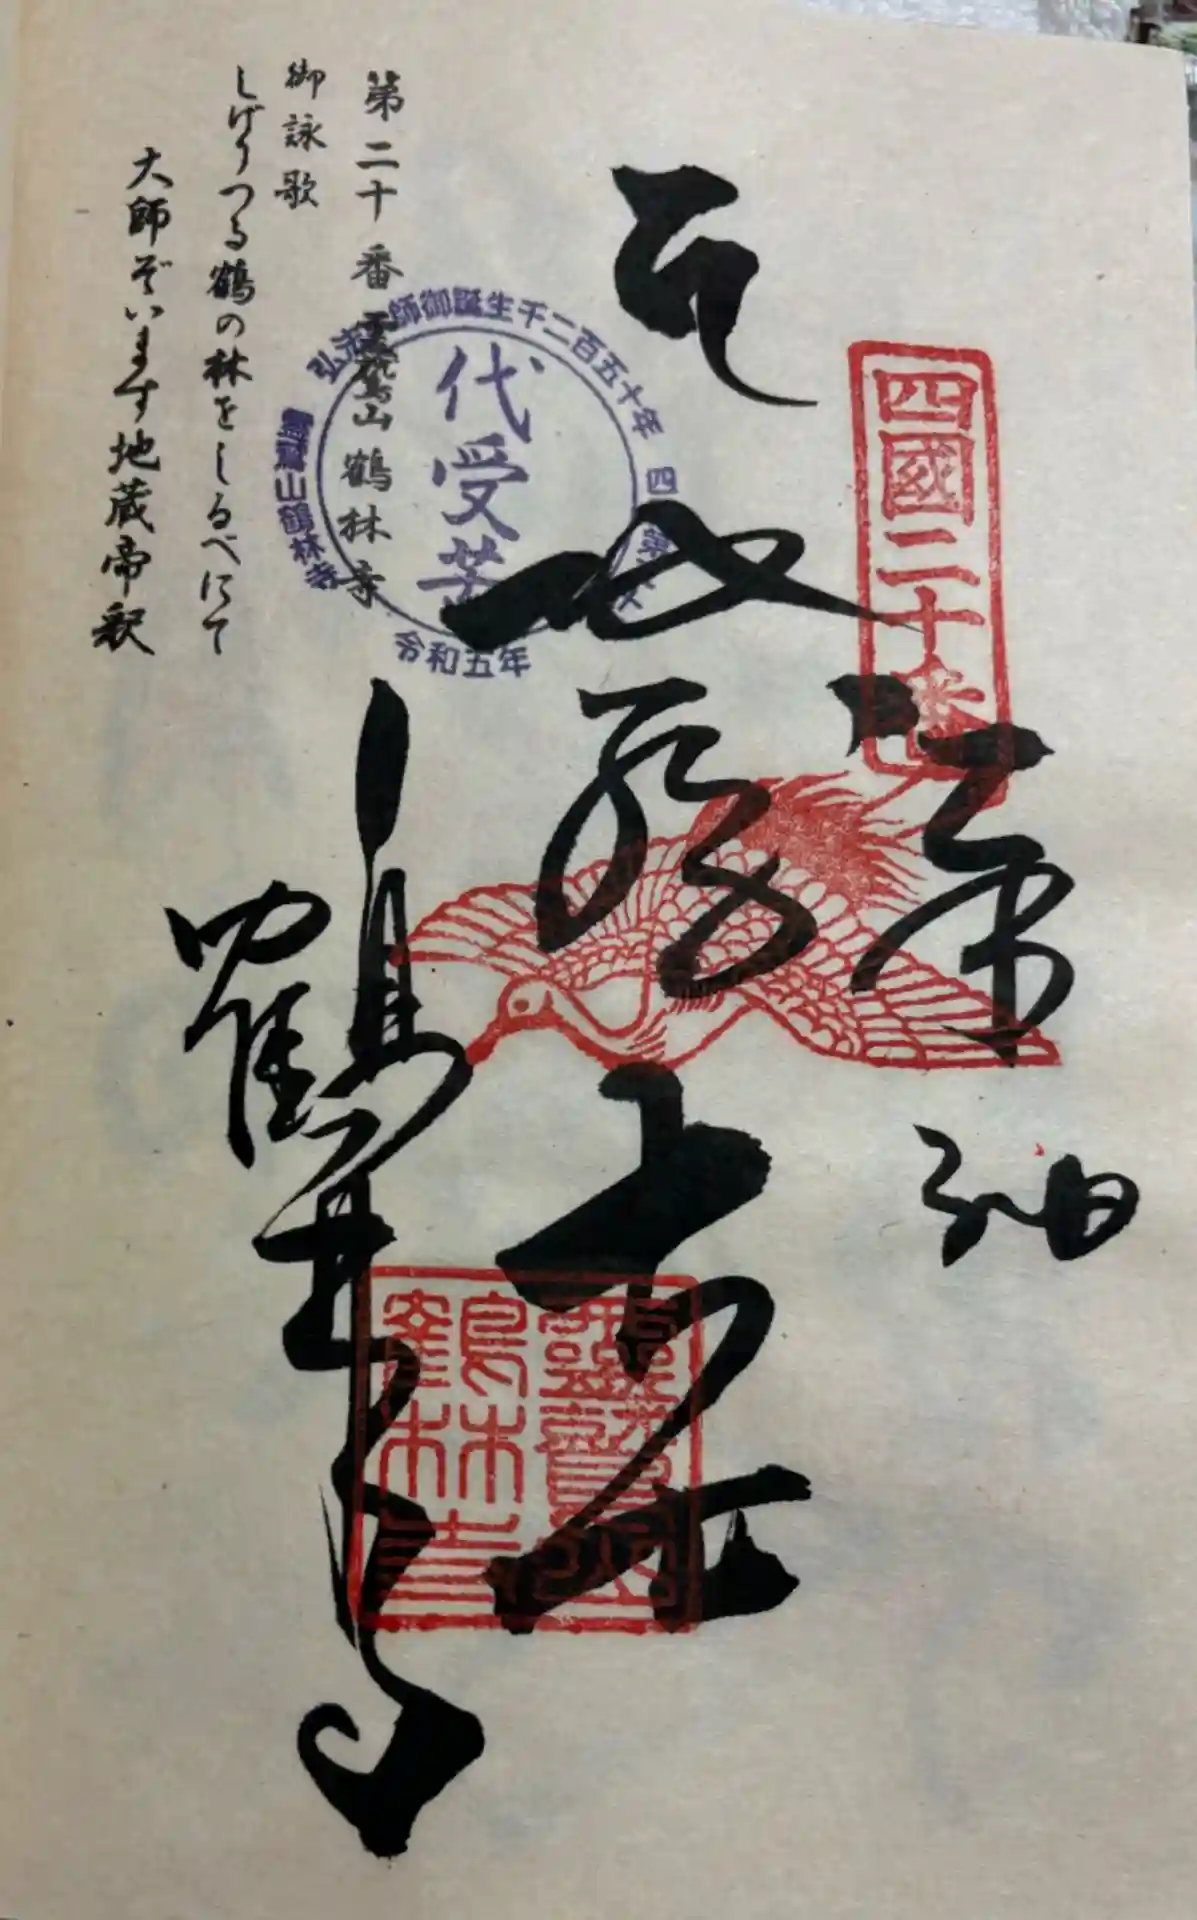 四國二十番
奉納
地蔵大士
靈鷲山
鶴林寺
鶴林寺
弘法大師御誕生千二百五十年
代受苦
霊鷲山鶴林寺
令和五年
第二十番 霊鷲山 鶴林寺
御詠歌
しげりつる鶴の林をしるべにて
大師ぞいます地蔵帝釈